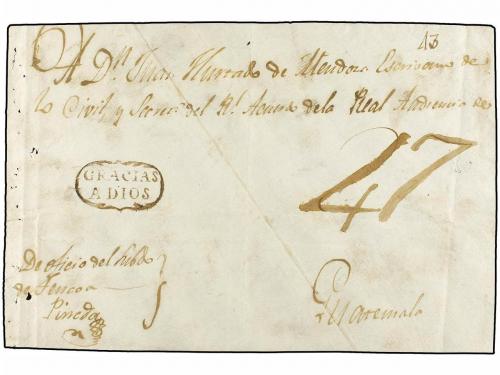 43
A Dn. Juan Hurtado de Mendoza Escrivano de
lo Civil, y Secreo. del Rl. Acuerdo de la Real Audiencia de
GRACIAS
A DIOS
47
De oficio del Subdo
de Tencoa
Pineda
Guatemala